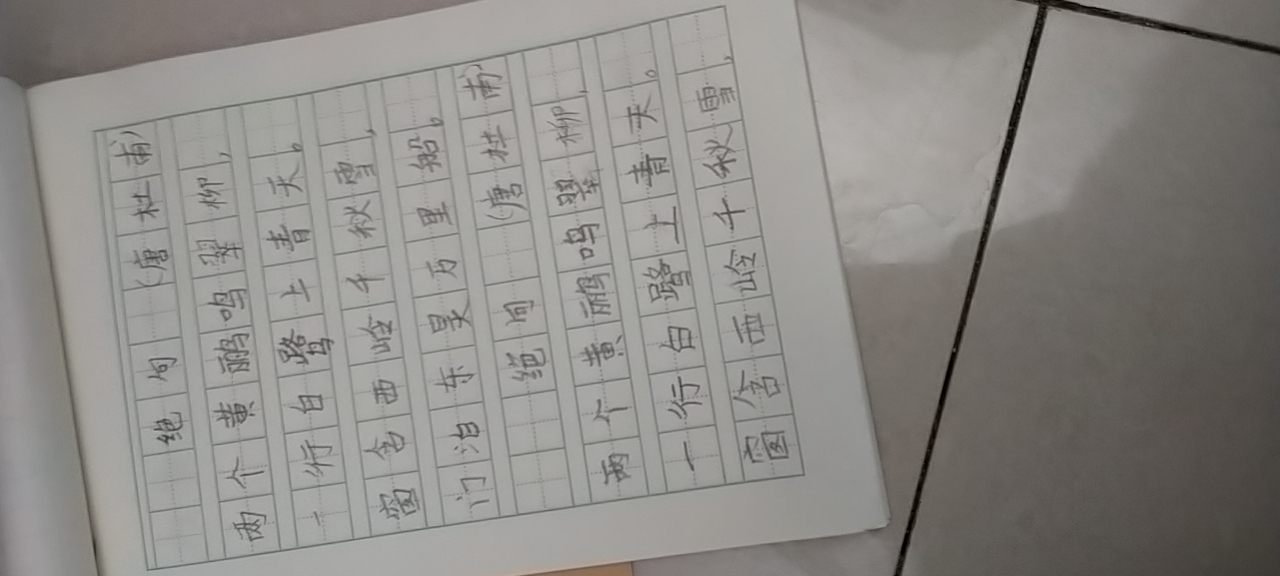 绝句 (唐 杜甫)
两个黄鹂鸣翠柳,
一行白鹭上青天。
窗含西岭千秋雪,
门泊东吴万里船。
绝句 (唐 杜甫)
两个黄鹂鸣翠柳,
一行白鹭上青天。
窗含西岭千秋雪,